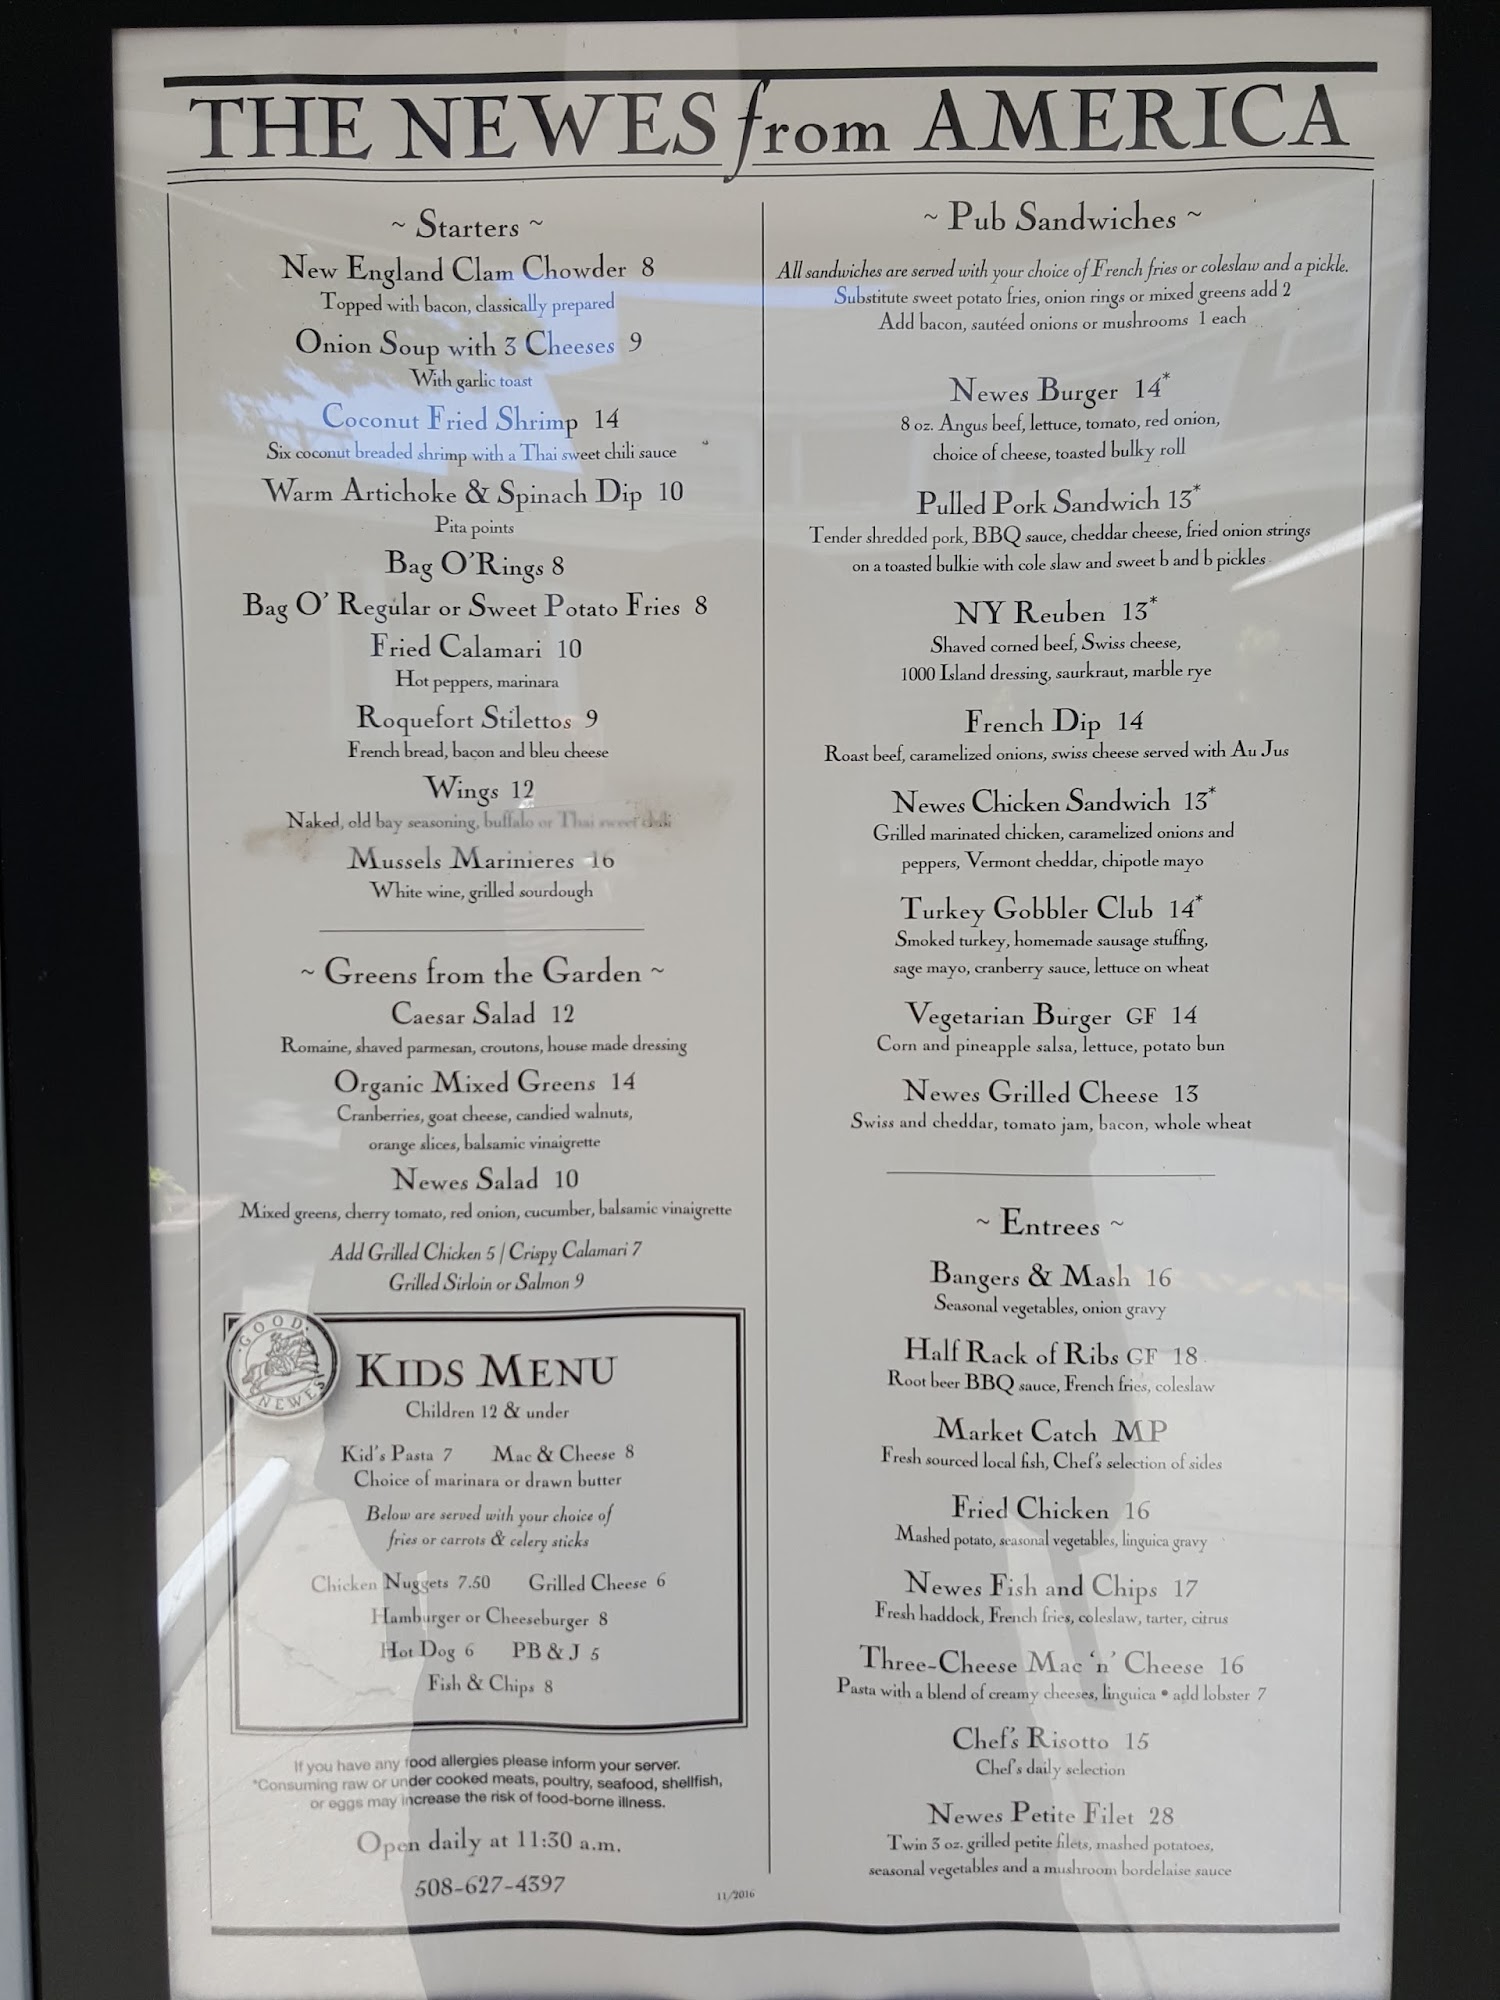 THE NEWES from AMERICA
~ Starters ~
New England Clam Chowder 8
Topped with bacon, classically prepared
Onion Soup with 3 Cheeses 9
With garlic toast
Coconut Fried Shrimp 14
Six coconut breaded shrimp with a Thai sweet chili sauce
Warm Artichoke & Spinach Dip 10
Pita points
Bag O'Rings 8
Bag O' Regular or Sweet Potato Fries 8
Fried Calamari 10
Hot peppers, marinara
Roquefort Stilettos 9
French bread, bacon and bleu cheese
Wings 12
Naked, old bay seasoning, buffalo or Thai sweet chili
Mussels Marinieres 16
White wine, grilled sourdough
~ Greens from the Garden ~
Caesar Salad 12
Romaine, shaved parmesan, croutons, house made dressing
Organic Mixed Greens 14
Cranberries, goat cheese, candied walnuts,
orange slices, balsamic vinaigrette
Newes Salad 10
Mixed greens, cherry tomato, red onion, cucumber, balsamic vinaigrette
Add Grilled Chicken 5 | Crispy Calamari 7
Grilled Sirloin or Salmon 9
GOOD NEWES
KIDS MENU
Children 12 & under
Kid's Pasta 7 Mac & Cheese 8
Choice of marinara or drawn butter
Below are served with your choice of
fries or carrots & celery sticks
Chicken Nuggets 7.50 Grilled Cheese 6
Hamburger or Cheeseburger 8
Hot Dog 6 PB & J 5
Fish & Chips 8
If you have any food allergies please inform your server.
*Consuming raw or under cooked meats, poultry, seafood, shellfish,
or eggs may increase the risk of food-borne illness.
Open daily at 11:30 a.m.
508-627-4397
11/2016
~ Pub Sandwiches ~
All sandwiches are served with your choice of French fries or coleslaw and a pickle.
Substitute sweet potato fries, onion rings or mixed greens add 2
Add bacon, sautéed onions or mushrooms 1 each
Newes Burger 14*
8 oz. Angus beef, lettuce, tomato, red onion,
choice of cheese, toasted bulky roll
Pulled Pork Sandwich 13*
Tender shredded pork, BBQ sauce, cheddar cheese, fried onion strings
on a toasted bulkie with cole slaw and sweet b and b pickles
NY Reuben 13*
Shaved corned beef, Swiss cheese,
1000 Island dressing, saurkraut, marble rye
French Dip 14
Roast beef, caramelized onions, swiss cheese served with Au Jus
Newes Chicken Sandwich 13*
Grilled marinated chicken, caramelized onions and
peppers, Vermont cheddar, chipotle mayo
Turkey Gobbler Club 14*
Smoked turkey, homemade sausage stuffing,
sage mayo, cranberry sauce, lettuce on wheat
Vegetarian Burger GF 14
Corn and pineapple salsa, lettuce, potato bun
Newes Grilled Cheese 13
Swiss and cheddar, tomato jam, bacon, whole wheat
~ Entrees ~
Bangers & Mash 16
Seasonal vegetables, onion gravy
Half Rack of Ribs GF 18
Root beer BBQ sauce, French fries, coleslaw
Market Catch MP
Fresh sourced local fish, Chef's selection of sides
Fried Chicken 16
Mashed potato, seasonal vegetables, linguica gravy
Newes Fish and Chips 17
Fresh haddock, French fries, coleslaw, tarter, citrus
Three-Cheese Mac 'n' Cheese 16
Pasta with a blend of creamy cheeses, linguica • add lobster 7
Chef's Risotto 15
Chef's daily selection
Newes Petite Filet 28
Twin 3 oz. grilled petite filets, mashed potatoes,
seasonal vegetables and a mushroom bordelaise sauce